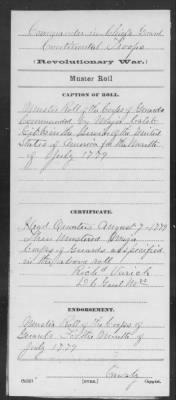 Commander in Chiefs Guard
Continental Troops
(Revolutionary War.)
Muster Roll
CAPTION OF ROLL.
Muster Roll of the Corps of Guards
Commanded by Major Caleb
Gibbs in the Service of the United
States of America for the Month
of July 1779
CERTIFICATE.
Head Quarters August 7 1779
Then Mustered Major
Guards as specified
in the above roll
Richd Varick
D C Genl
ENDORSEMENT.
Muster Roll of the Corps of
Guards for the Month of
July 1779
[OVER.]
Copyist.